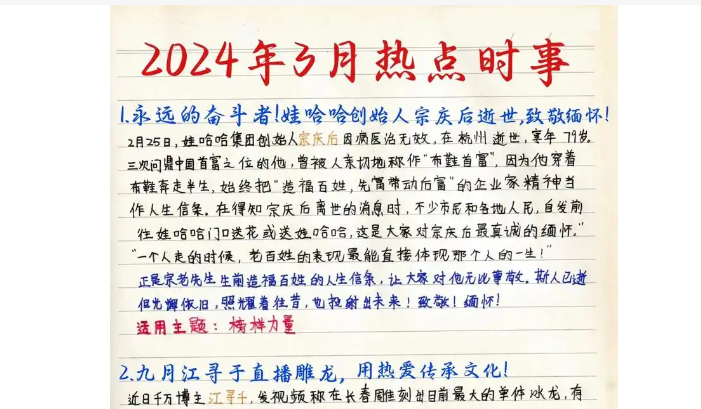 2024年3月热点时事
1.永远的奋斗者!娃哈哈创始人宗庆后逝世,致敬缅怀!
2月25日,娃哈哈集团创始人宗庆后因病医治无效,在杭州逝世,享年79岁。
三次问鼎中国首富之位的他,曾被人亲切地称作“布鞋首富”,因为他穿着
布鞋奔走半生,始终把“造福百姓,先富带动后富”的企业家精神当
作人生信条。在得知宗庆后离世的消息时,不少市民和各地人民,自发前
往娃哈哈门口送花或送娃哈哈,这是大家对宗庆后最真诚的缅怀。”
“一个人走的时候,老百姓的表现最能直接体现那个人的一生!”
正是宗老先生生前造福百姓的人生信条,让大家对他无比尊敬。斯人已逝
但光辉依旧,照耀着往昔,也投射出未来!致敬!缅怀!
适用主题:榜样力量
2.九月江寻于直播雕龙,用热爱传承文化!
近日千万博主江寻千,发视频称在长春雕刻出目前最大的单体冰龙,有